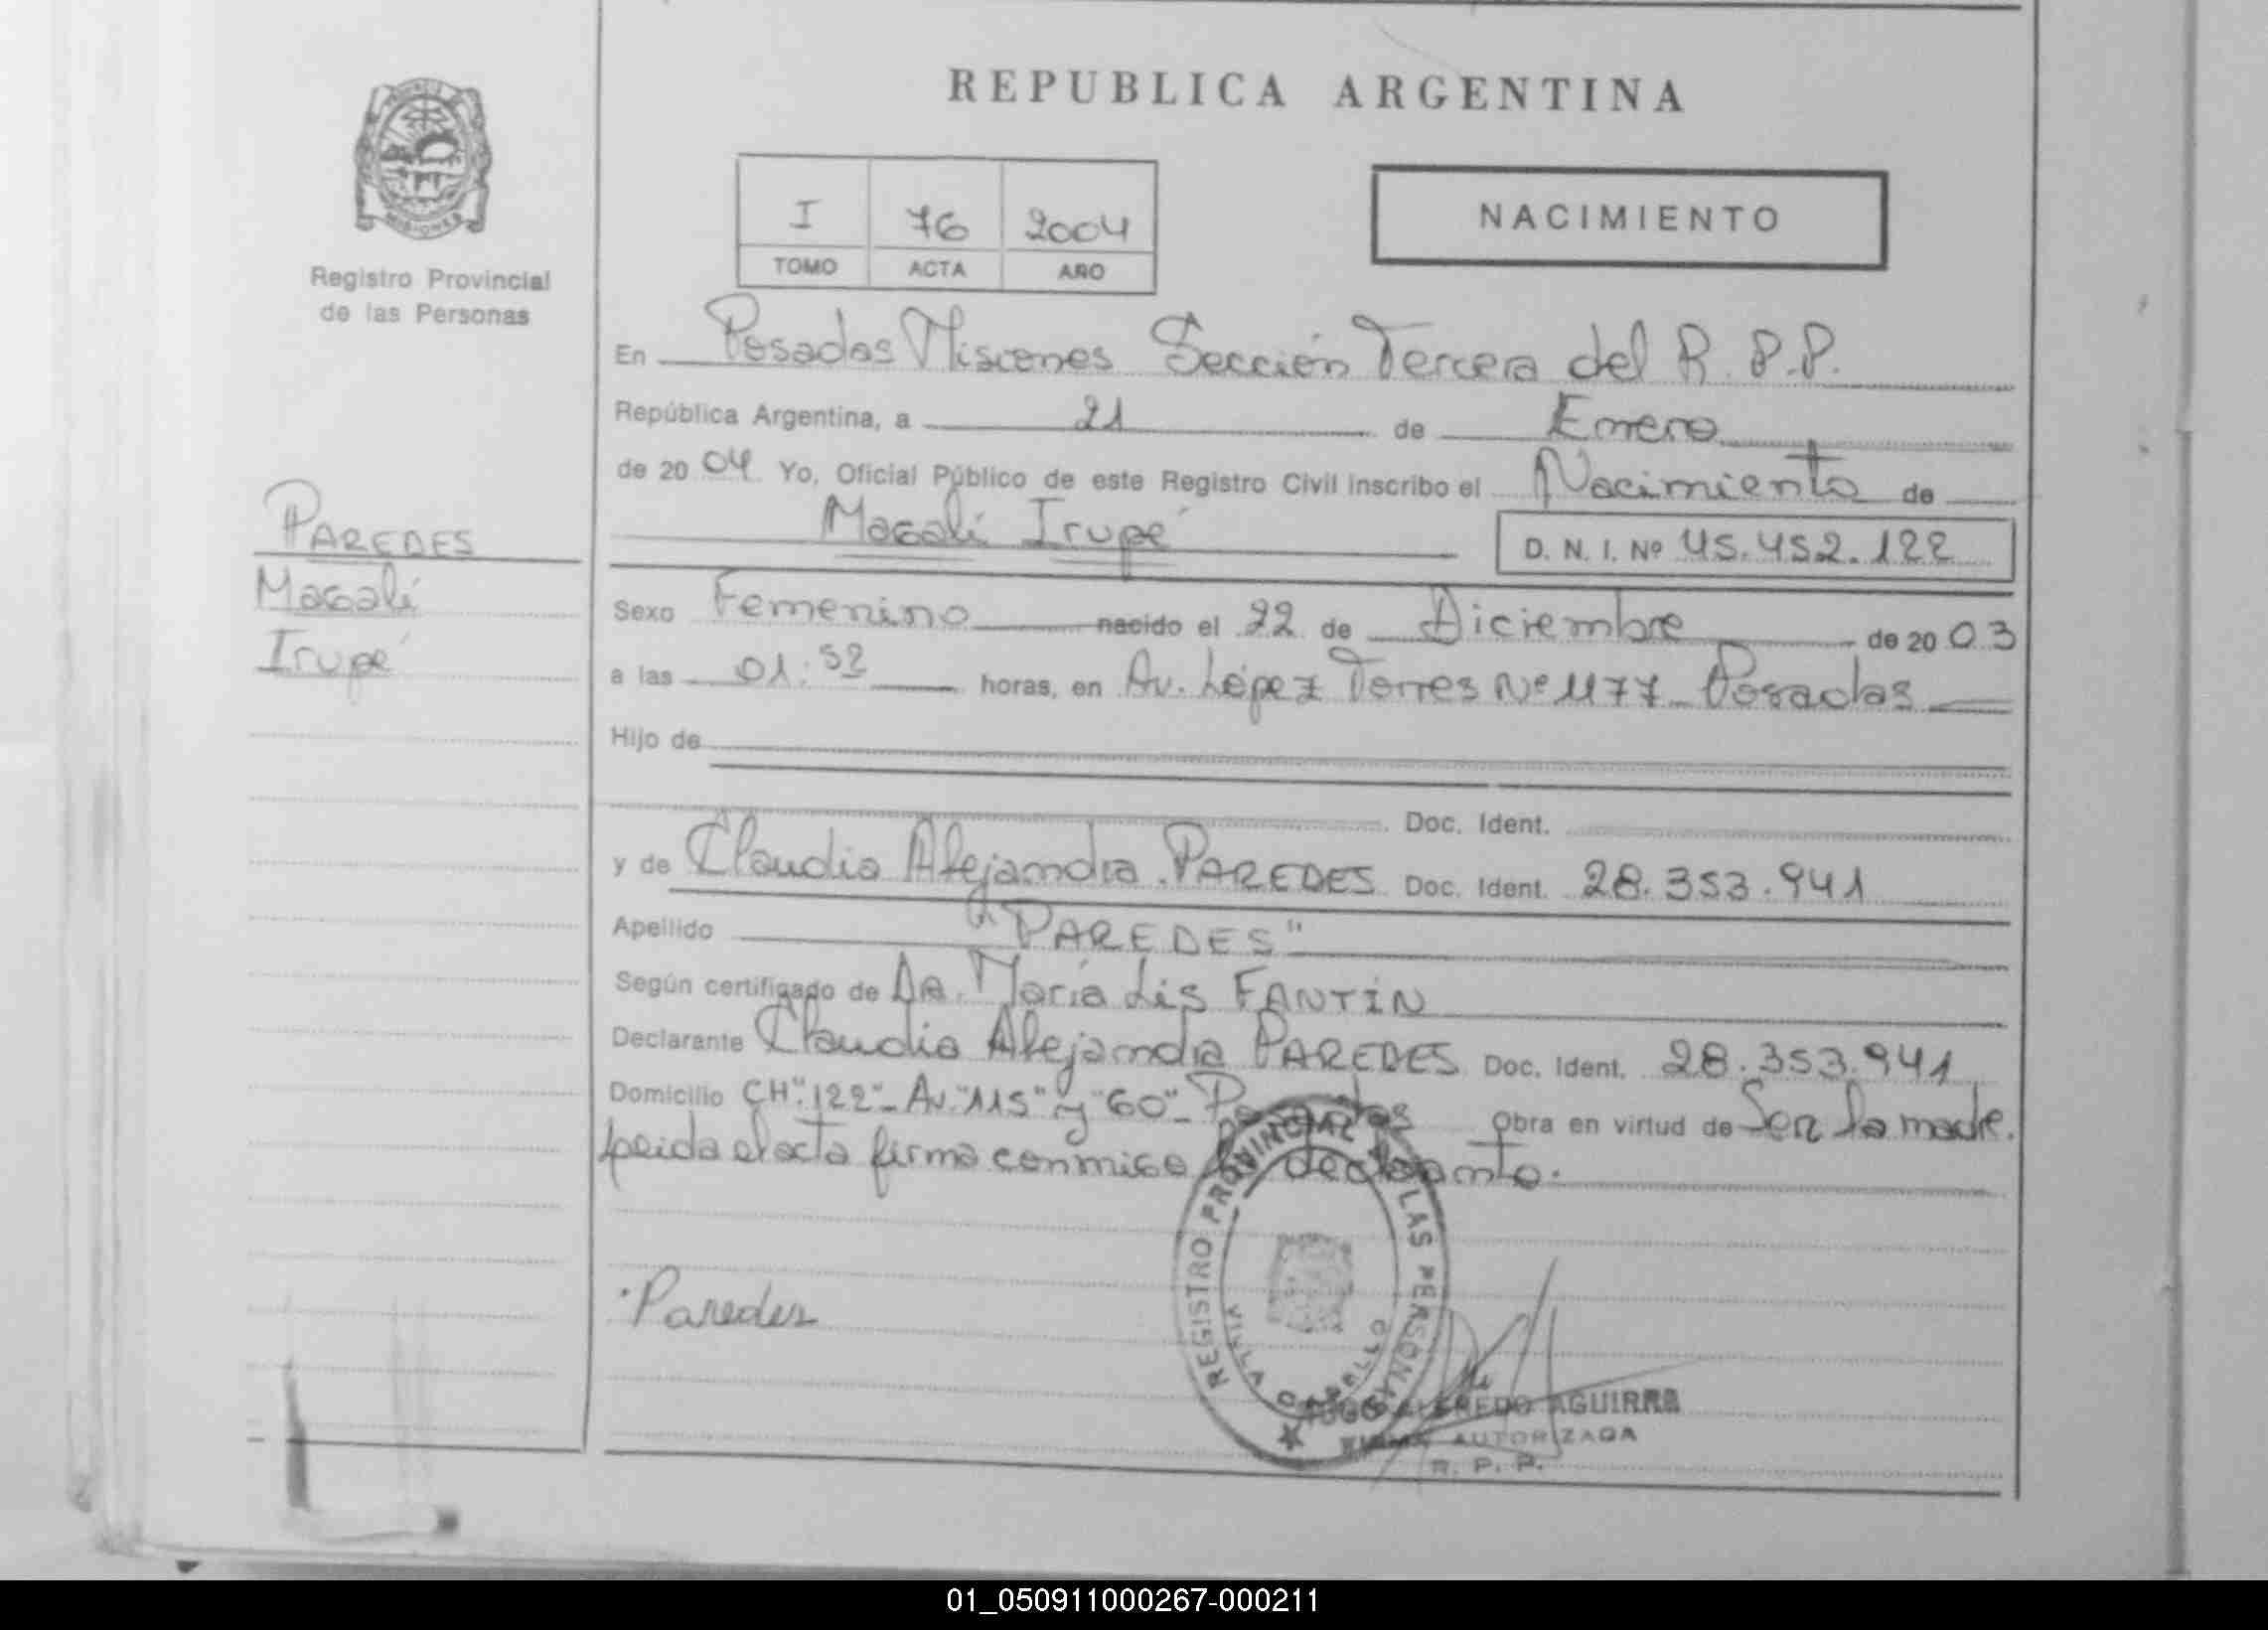 REPUBLICA ARGENTINA
MISIONES
Registro Provincial
de las Personas
I 76 2004
TOMO ACTA AÑO
NACIMIENTO
En Posadas Misiones Sección Tercera del R.P.P.
República Argentina, a 21 de Enero
de 2004 Yo, Oficial Público de este Registro Civil inscribo el Nacimiento de
Magalí Irupé D. N. I. Nº 45.452.122
PAREDES
Magalí
Irupé
Sexo Femenino nacido el 22 de Diciembre de 2003
a las 01:52 horas, en Av. López Torres Nº 1177 - Posadas
Hijo de
Doc. Ident.
y de Claudia Alejandra PAREDES Doc. Ident. 28.353.941
Apellido "PAREDES"
Según certificado de Dra. María Lis FANTIN
Declarante Claudia Alejandra PAREDES Doc. Ident. 28.353.941
Domicilio CH "122" - Av. "115" y "60" - Posadas Obra en virtud de Ser la madre.
Leida el acta firma conmigo la declarante.
REGISTRO PROVINCIAL DE LAS PERSONAS
Paredes
AGUIRRE
FIRMA AUTORIZADA
R. P. P.
01_050911000267-000211